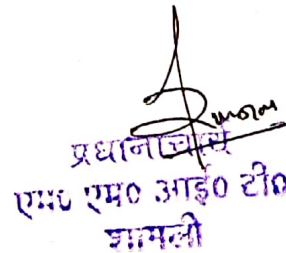 प्रधानाचार्य
एम० एम० आई० टी०
शामली